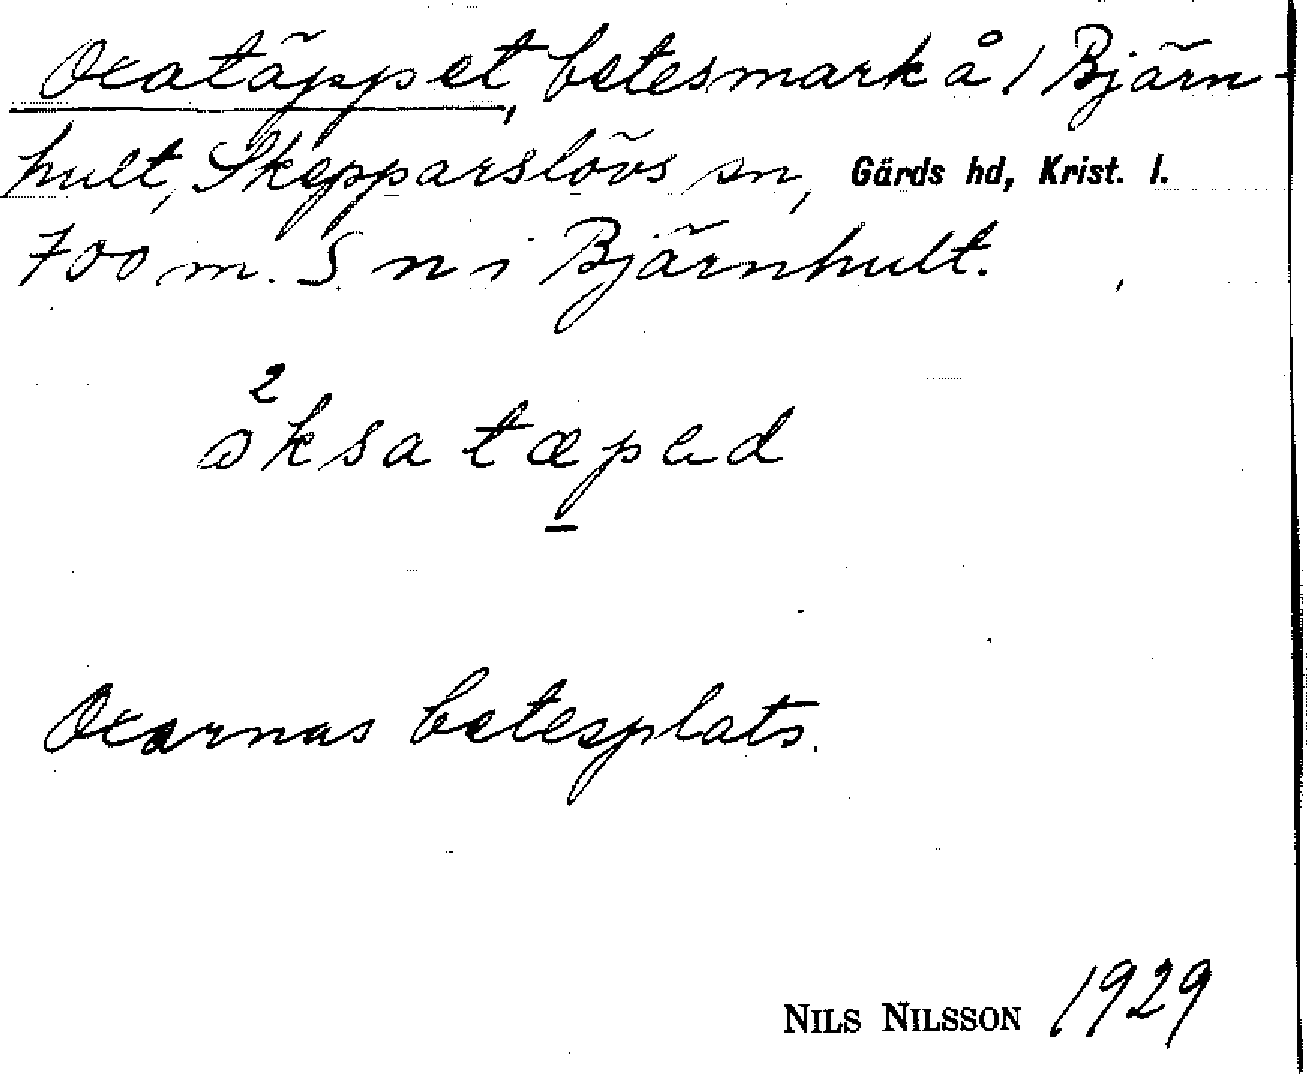 Oxatäppet, betesmark å 1 Bjärn-
hult, Skepparslövs sn, Gärds hd, Krist. l.
700 m. S n i Bjärnhult.
2
åksatæpad
Oxarnas betesplats.
NILS NILSSON 1929